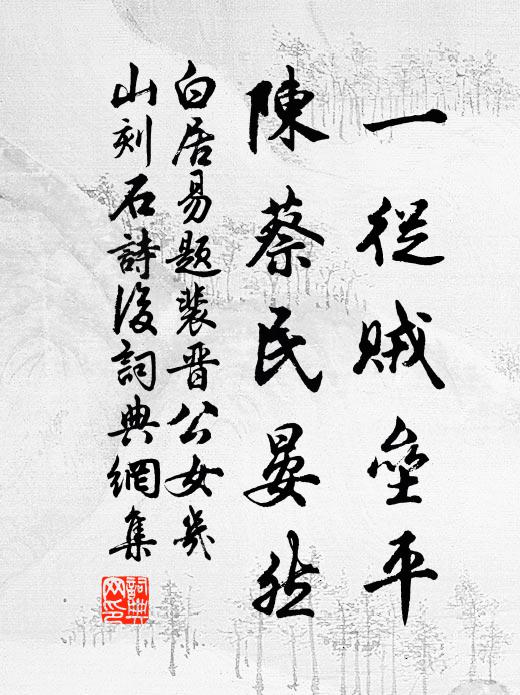 一從賊壘平
陳蔡民晏然
白居易題裴晋公女㡬
山刻石詩後詞典網集
詞典网印